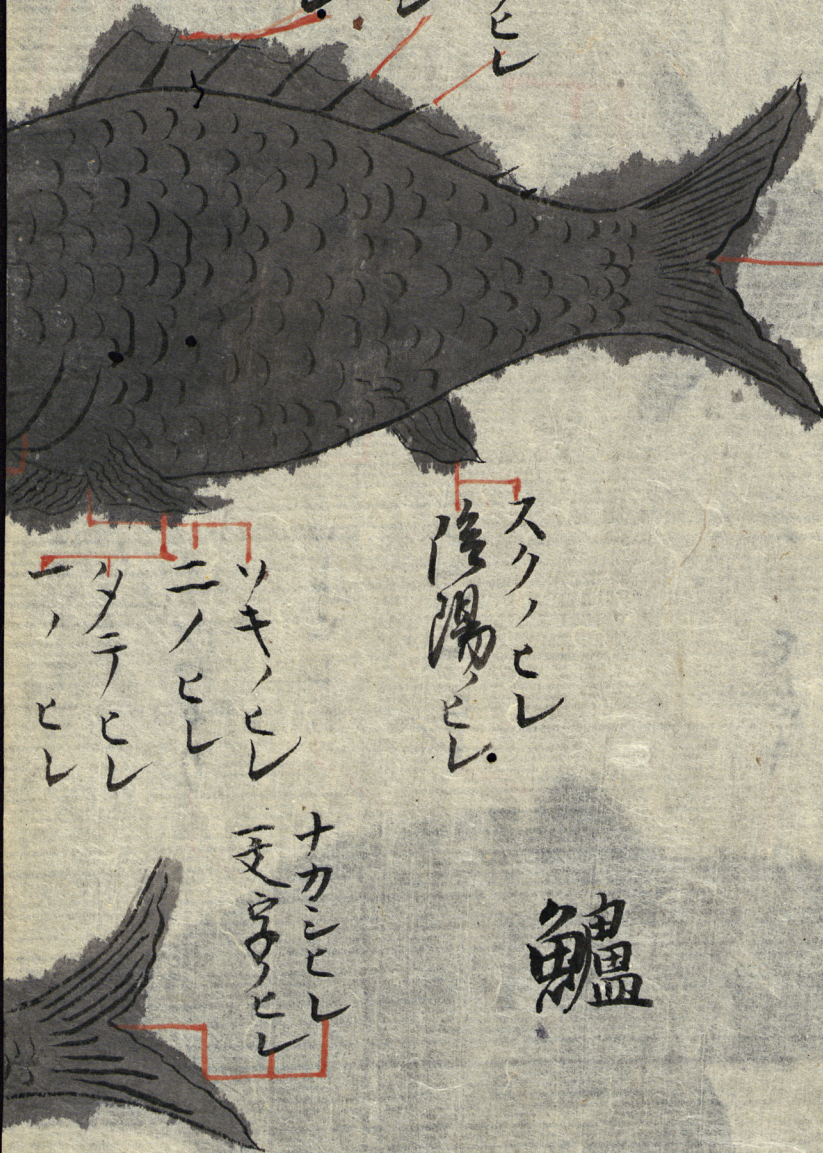 ヒレ
スクノヒレ
陰陽ノヒレ
ソキノヒレ
二ノヒレ
タテヒレ
一ノヒレ
鱸
ナカシヒレ
一文字ノヒレ